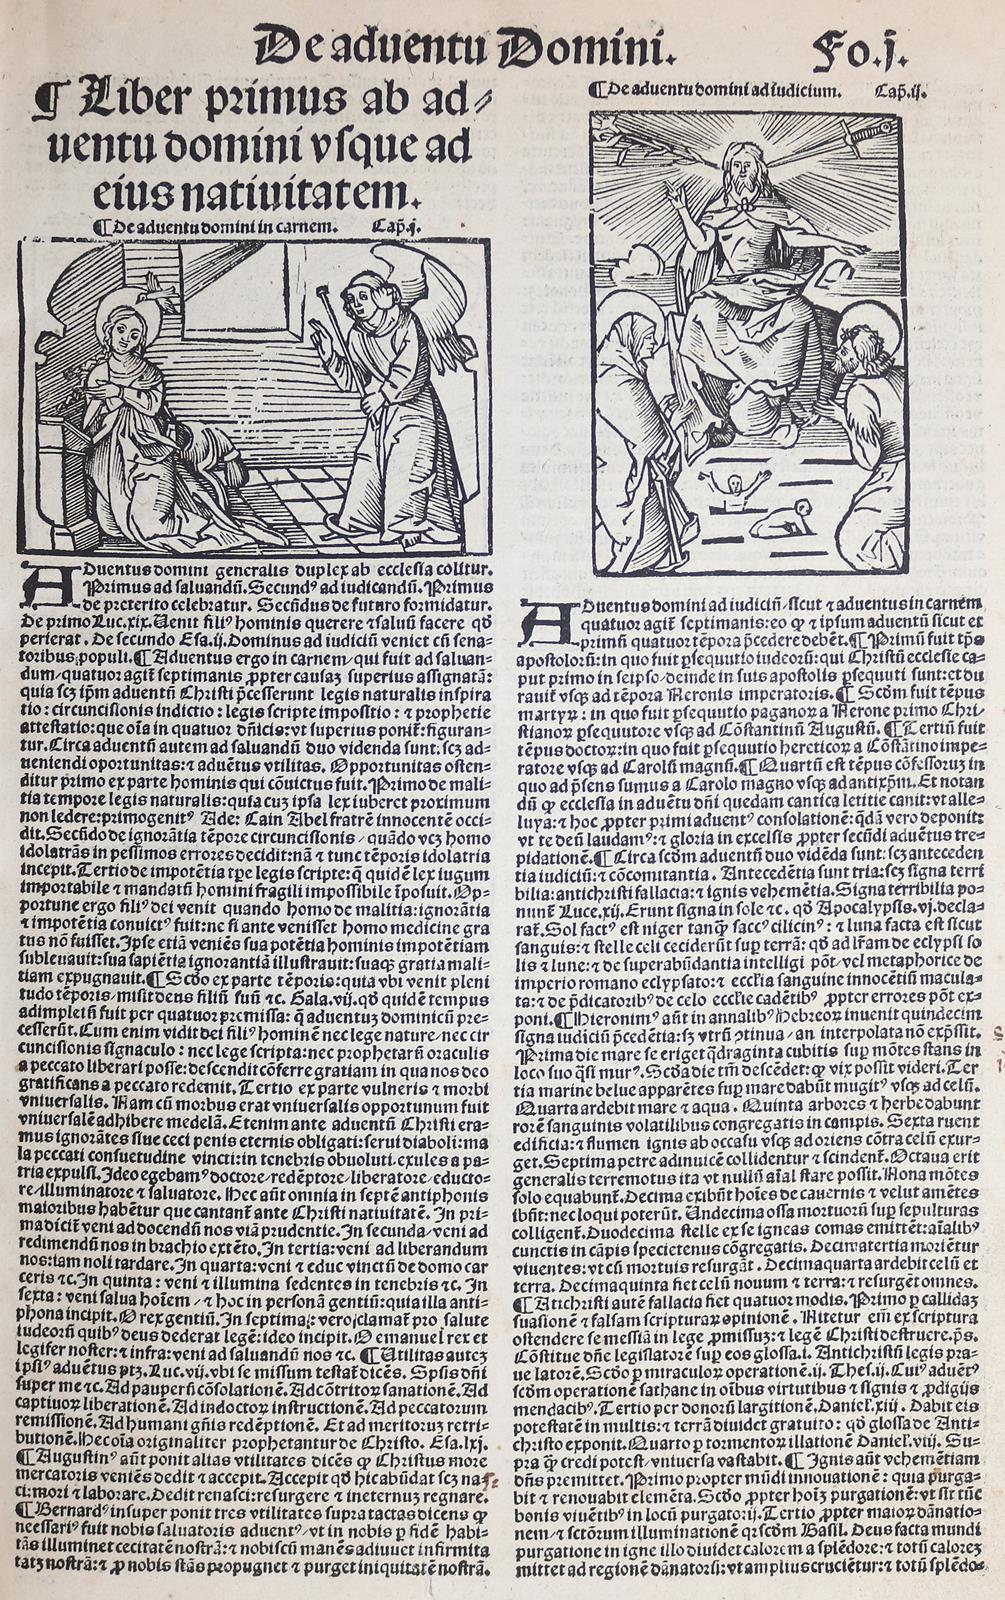 De aduentu Domini. Fo.j.
¶ Liber primus ab ad⸗
uentu domini vſque ad
eius natiuitatem.
¶ De aduentu domini in carnem. Cap̃.j.
ADuentus domini generalis duplex ab eccleſia colitur.
Primus ad saluandũ. Secundꝰ ad iudicandũ. Primus
de preterito celebratur. Secũdus de futuro formidatur.
De primo Luc.xix. Uenit filiꝰ hominis querere ⁊ saluũ facere qð
perierat. De secundo Esa.ij. Dominus ad iudiciũ veniet cũ sena⸗
toribus populi. ¶ Aduentus ergo in carnem/ qui fuit ad saluan⸗
dum/quatuor agit̃ septimanis ꝓpter causaʒ superius assignatã:
quia scʒ ip̃m aduentũ Christi p̃cesserunt legis naturalis inspira
tio: circuncisionis indictio: legis scripte impositio: ⁊ prophetie
attestatio: que oĩa in quatuor dñicis: vt superius ponit̃: figuran⸗
tur. Circa aduentũ autem ad saluandũ duo videnda sunt: scʒ ad⸗
ueniendi oportunitas: ⁊ aduẽtus vtilitas. Opportunitas osten⸗
ditur primo ex parte hominis qui cõuictus fuit. Primo de mali⸗
tia tempore legis naturalis: quia cuʒ ipsa lex iuberet proximum
non ledere: primogenitꝰ Ade: Cain Abel fratrẽ innocentẽ occi⸗
dit. Secũdo de ignorãtia tẽpore circuncisionis/ quãdo vcʒ homo
idolatrãs in pessimos errores decidit: nã ⁊ tunc tẽporis idolatria
incepit. Tertio de impotẽtia tp̃e legis scripte: q̃ quidẽ lex iugum
importabile ⁊ mandatũ homini fragili impossibile ĩposuit. Op⸗
portune ergo filiꝰ dei venit quando homo de malitia: ignorãtia
⁊ impotẽtia conuictꝰ fuit: ne si ante venisset homo medicine gra
tus nõ fuisset. Ipse etiã veniẽs sua potẽtia hominis impotẽtiam
subleuauit: sua sapiẽtia ignorantiã illustrauit: suaqʒ gratia mali⸗
tiam expugnauit. ¶ Scd̃o ex parte tẽporis: quia vbi venit pleni
tudo tẽporis/ misit deus filiũ suũ ⁊c. Gala.vij. qð quidẽ tempus
adimpletũ fuit per quatuor premissa: q̃ aduentuʒ dominicũ pre⸗
cesserũt. Cum enim vidit dei filiꝰ hominẽ nec lege nature/ nec cir
cuncisionis signaculo: nec lege scripta: nec prophetarũ oraculis
a peccato liberari posse: descendit cõferre gratiam in qua nos deo
gratificans a peccato redemit. Tertio ex parte vulneris ⁊ morbi
vniuersalis. Nam cũ morbus erat vniuersalis opportunum fuit
vniuersalẽ adhibere medelã. Etenim ante aduentũ Christi era⸗
mus ignorãtes siue ceci penis eternis obligati: serui diaboli: ma
la peccati consuetudine vincti: in tenebris obuoluti: exules a pa⸗
tria expulsi. Ideo egebamꝰ doctore/ redẽptore/ liberatore/ educto⸗
re/ illuminatore ⁊ saluatore. Hec aũt omnia in septẽ antiphonis
maioribus habẽtur que cantant̃ ante Christi natiuitatẽ. In pri⸗
ma dicit̃ veni ad docendũ nos viã prudentie. In secunda/ veni ad
redimendũ nos in brachio extẽto. In tertia: veni ad liberandum
nos: iam noli tardare. In quarta: veni ⁊ educ vinctũ de domo car
ceris ⁊c. In quinta: veni ⁊ illumina sedentes in tenebris ⁊c. In
sexta: veni salua hoĩem/ ⁊ hoc in personã gentiũ: quia illa anti⸗
phona incipit. O rex gentiũ. In septima: vero clamat̃ pro salute
iudeorũ quibꝰ deus dederat legẽ: ideo incipit. O emanuel rex et
legifer noster: ⁊ infra: veni ad saluandũ nos ⁊c. ¶ Utilitas auteʒ
ipsiꝰ aduẽtus ptʒ. Luc.vij. vbi se missum testat̃ dicẽs. Sp̃s dñi
super me ⁊c. Ad pauperũ cõsolationẽ. Ad cõtritoꝝ sanationẽ. Ad
captiuoꝝ liberationẽ. Ad indoctoꝝ instructionẽ. Ad peccatorum
remissionẽ. Ad humani gñis redẽptionẽ. Et ad meritoꝝ retri⸗
butionẽ. Hec oĩa originaliter prophetantur de Christo. Esa.lxj.
¶ Augustinꝰ aũt ponit alias vtilitates dicẽs ꝙ Christus more
mercatoris veniẽs dedit ⁊ accepit. Accepit qð hic abũdat scʒ nas
ci: mori ⁊ laborare. Dedit renasci: resurgere ⁊ in eternuʒ regnare.
¶ Bernardꝰ insuper ponit tres vtilitates supra tactas dicens ꝙ
necessariꝰ fuit nobis saluatoris aduentꝰ/ vt in nobis ꝑ fidẽ habi⸗
tãs illuminet cecitatẽ nostrã: ⁊ nobiscũ manẽs adiuuet infirmita
tatʒ nostrã: ⁊ ꝓ nobis stãs propugnet ⁊ purget iniquitatẽ nostrã.
¶ De aduentu domini ad iudicium. Cap̃.ij.
ADuentus domini ad iudiciũ/ sicut ⁊ aduentus in carnẽm
quatuor agit̃ septimanis: eo ꝙ ⁊ ipsum aduentũ sicut et
primũ quatuor tẽpora p̃cedere debẽt. ¶ Primũ fuit tp̃s
apostolorũ: in quo fuit ꝑsequutio iudeorũ: qui Christũ ecclesie ca⸗
put primo in seipso/ deinde in suis apostolis ꝑsequuti sunt: et du
rauit vsqʒ ad tẽpora Neronis imperatoris. ¶ Scd̃m fuit tẽpus
martyꝝ: in quo fuit ꝑsequutio paganoꝝ a Nerone primo Chri⸗
stianoꝝ ꝑsequutore vsqʒ ad Cõstantinũ Augustũ. ¶ Tertiũ fuit
tẽpus doctoꝝ: in quo fuit ꝑsequutio hereticoꝝ a Cõstãtino impe⸗
ratore vsqʒ ad Carolũ magnũ. ¶ Quartũ est tẽpus cõfessoruʒ in
quo ad p̃sens sumus a Carolo magno vsqʒ ad antixp̃m. Et notan
dũ ꝙ ecclesia in aduẽtu dñi quedam cantica letitie canit: vt alle⸗
luya: ⁊ hoc ꝓpter primi aduentꝰ consolationẽ: q̃dã vero deponit:
vt te deũ laudamꝰ: ⁊ gloria in excelsis ꝓpter secũdi aduẽtus tre⸗
pidationẽ. ¶ Circa scd̃m aduentũ duo vidẽda sunt: scʒ anteceden
tia iudiciũ: ⁊ cõcomitantia. Antecedẽtia sunt tria: scʒ signa terri
bilia: antichristi fallacia: ⁊ ignis vehemẽtia. Signa terribilia po⸗
nunt̃ Luce.xij. Erunt signa in sole ⁊c. qð Apocalypsis.vj. decla⸗
rat̃. Sol factꝰ est niger tanqʒ saccꝰ cilicinꝰ: ⁊ luna facta est sicut
sanguis: ⁊ stelle celi ceciderũt suꝑ terrã: qð ad lr̃am de eclypsi so
lis ⁊ lune: ⁊ de superabũdantia intelligi põt/ vel metaphorice de
imperio romano eclypsato: ⁊ eccl̃ia sanguine innocẽtiũ macula⸗
ta: ⁊ de p̃dicatoribꝰ de celo eccl̃ie cadẽtibꝰ ꝓpter errores põt ex⸗
poni. ¶ Hieronimꝰ aũt in annalibꝰ hebreoꝝ inuenit quindecim
signa iudiciũ p̃cedẽtia: sʒ vtrũ ↄtinua/ an interpolata nõ exp̃ssit.
Prima die mare se eriget q̃draginta cubitis suꝑ mõtes stans in
loco suo q̃si murꝰ. Scd̃a die tm̃ descẽdet: ꝙ vix possit videri. Ter
tia marine belue apparẽtes suꝑ mare dabũt mugitꝰ vsqʒ ad celũ.
Quarta ardebit mare ⁊ aqua. Quinta arbores ⁊ herbe dabunt
rorẽ sanguinis volatilibus congregatis in campis. Sexta ruent
edificia: ⁊ flumen ignis ab occasu vsqʒ ad oriens cõtra celũ exur⸗
get. Septima petre adinuicẽ collidentur ⁊ scindent̃. Octaua erit
generalis terremotus ita vt nullũ aĩal stare possit. Nona mõtes
solo equabunt̃. Decima exibũt hoĩes de cauernis ⁊ velut amẽtes
ibũt: nec loqui poterũt. Undecima ossa mortuorũ suꝑ sepulturas
colligent̃. Duodecima stelle ex se igneas comas emittẽt: aĩalibꝰ
cunctis in cãpis specietenus cõgregatis. Decimatertia moriẽtur
viuentes: vt cũ mortuis resurgãt. Decimaquarta ardebit celũ et
terra. Decimaquinta fiet celũ nouum ⁊ terra: ⁊ resurgẽt omnes.
¶ Ãtichristi autẽ fallacia fiet quatuor modis. Primo ꝑ callidaʒ
suasionẽ ⁊ falsam scripturaꝝ opinionẽ. Nitetur em̃ ex scriptura
ostendere se messiã in lege ꝓmissuʒ: ⁊ legẽ Christi destruere. p̃s.
Cõstitue dñe legislatorẽ suꝑ eos glossa.i. Antichristũ legis pra⸗
ue latorẽ. Scd̃o ꝑ miraculoꝝ operationẽ.ij. Thes.ij. Cuiꝰ aduẽtꝰ
scd̃m operationẽ sathane in oĩbus virtutibus ⁊ signis ⁊ ꝓdigijs
mendacibꝰ. Tertio ꝑ donorũ largitionẽ. Daniel̃.xiij. Dabit eis
potestatẽ in multis: ⁊ terrã diuidet gratuito: qð glossa de Anti⸗
christo exponit. Quarto ꝑ tormentoꝝ illationẽ Daniel̃.viij. Su⸗
pra q̃ credi potest/ vniuersa vastabit. ¶ Ignis aũt vehemẽtiam
dñs premittet. Primo propter mũdi innouationẽ: quia purga⸗
bit ⁊ renouabit elemẽta. Scd̃o ꝓpter hoĩʒ purgationẽ: vt sit tũc
bonis viuẽtibꝰ in locũ purgatorij. Tertio ꝓpter maioꝝ dãnatio⸗
nem/ ⁊ sctõrum illuminationẽ q̃ꝛ scd̃m Basil. Deus facta mundi
purgatione in igne illo diuidet calorem a splẽdore: ⁊ totũ caloreʒ
mittet ad regionẽ dãnatorũ: vt amplius cruciẽtur: ⁊ totũ splẽdo⸗